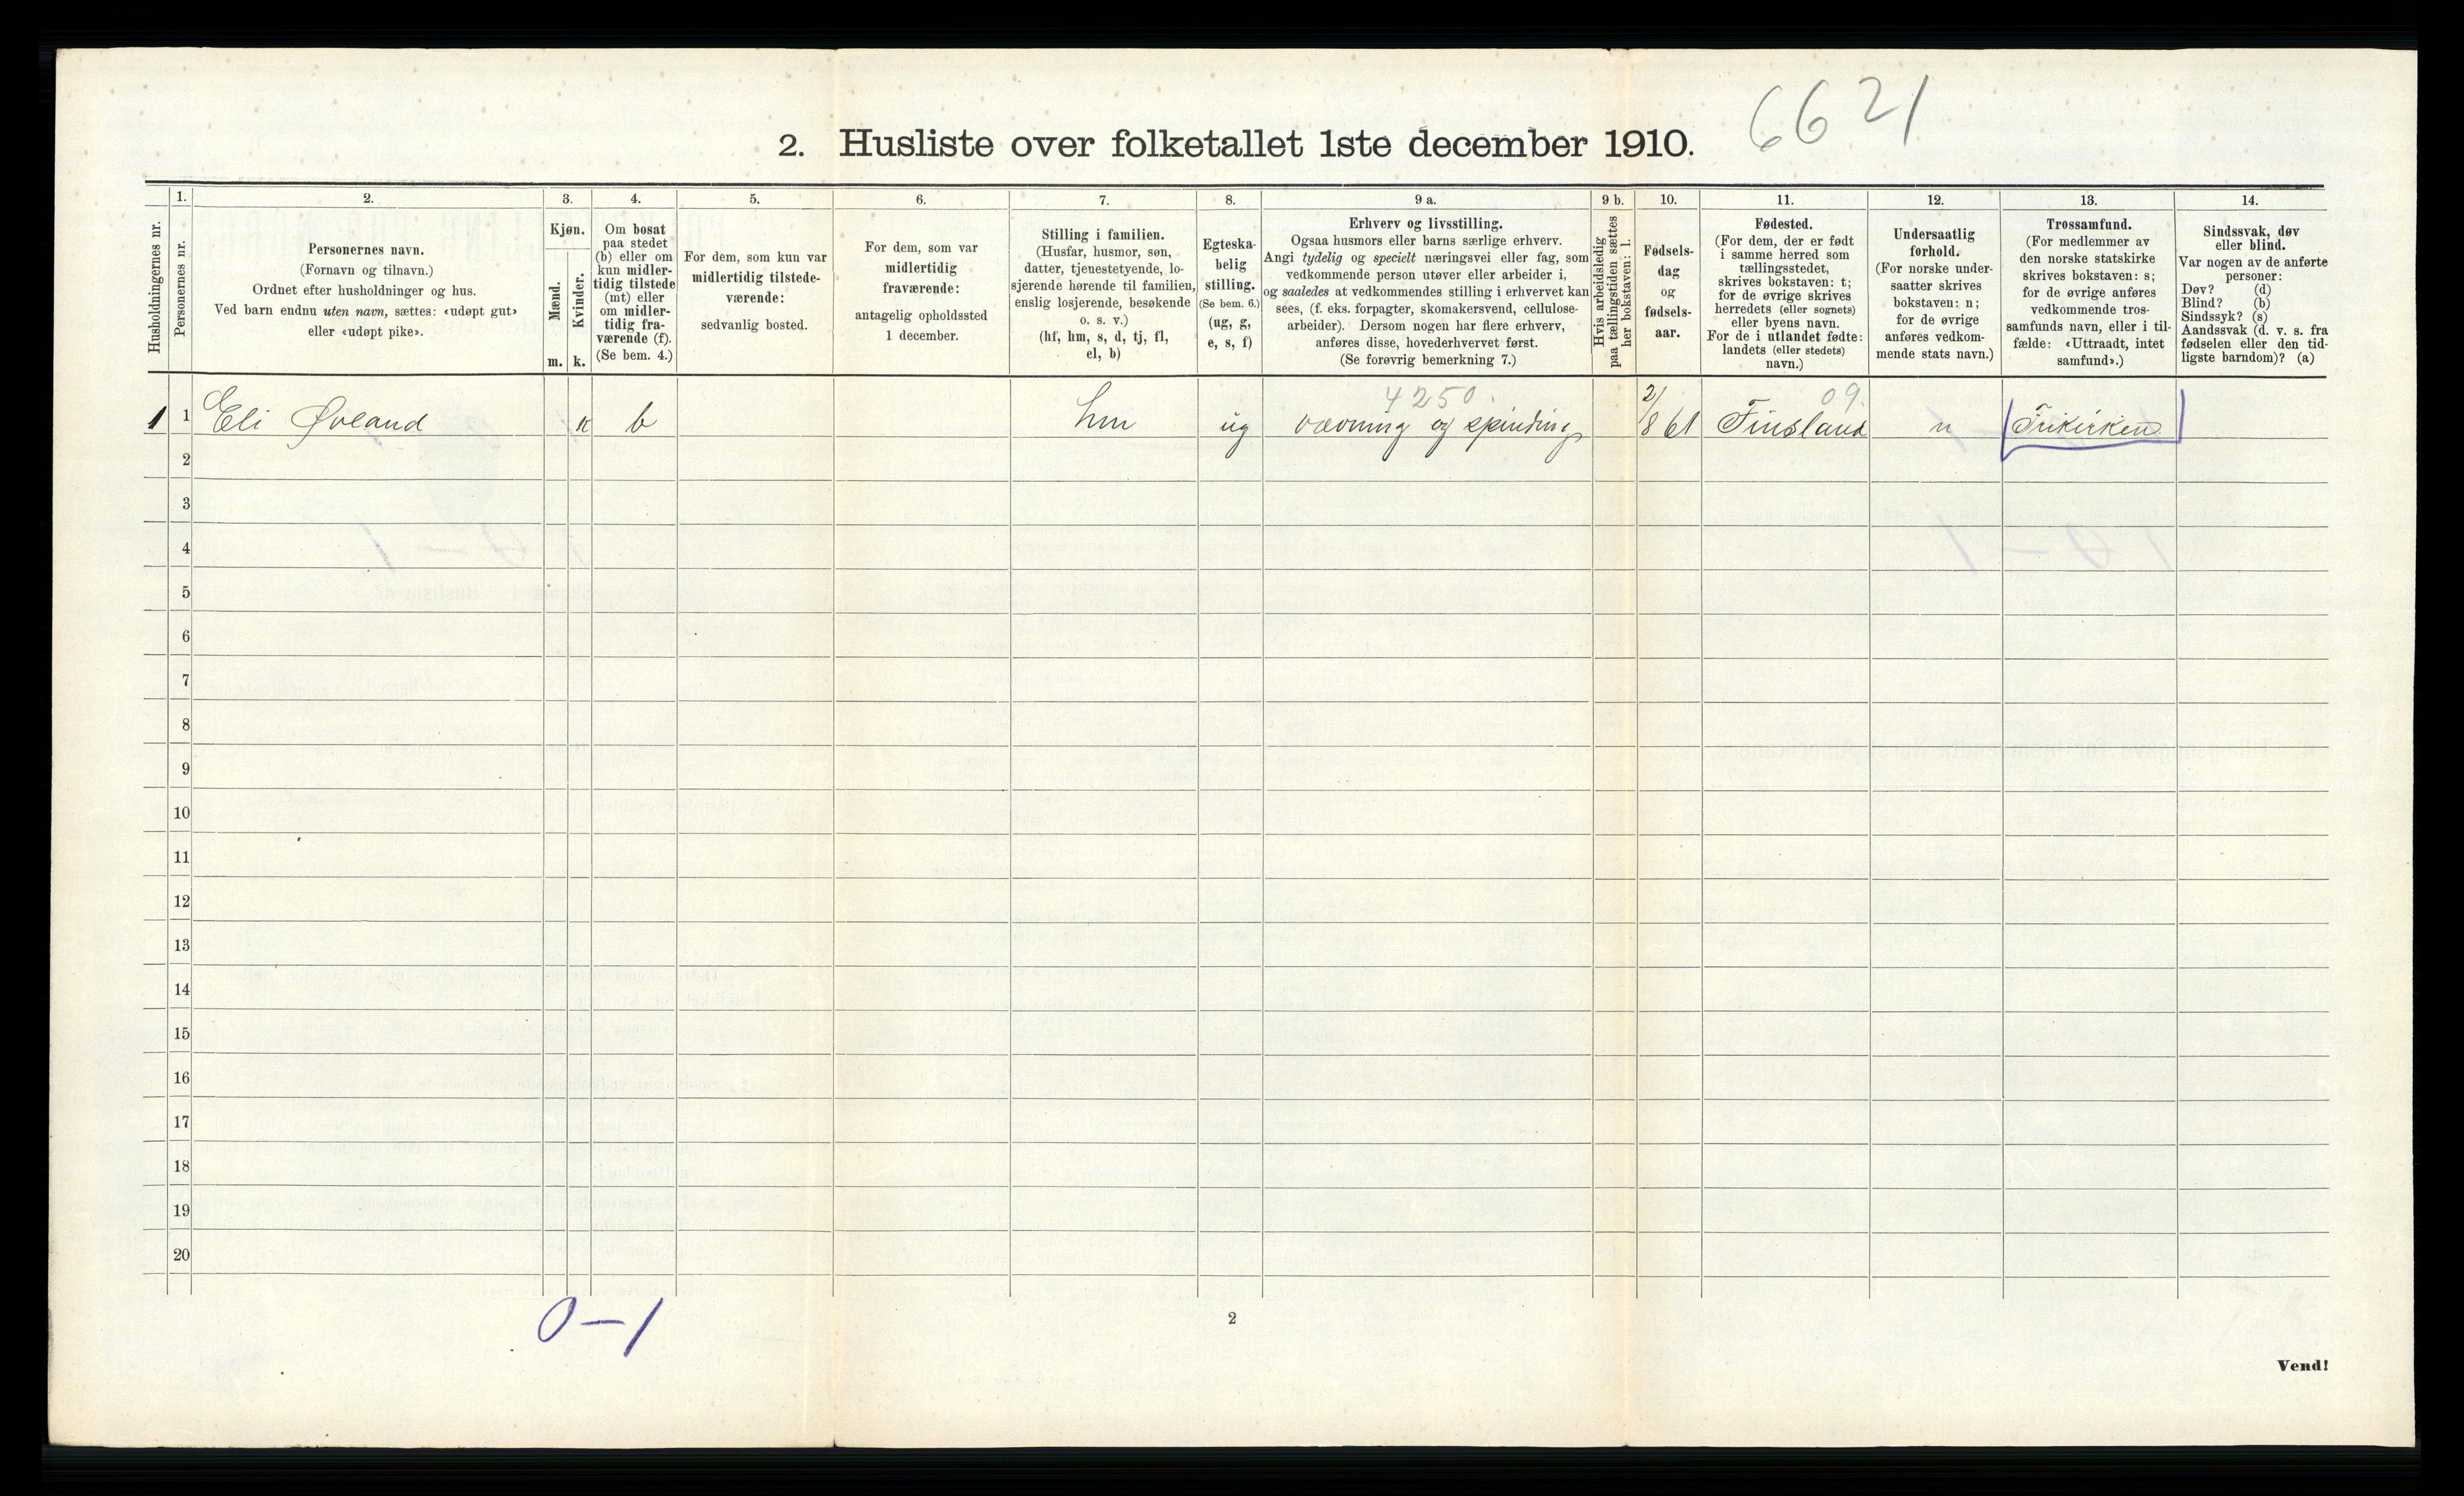 6621
2. Husliste over folketallet 1ste december 1910.
Husholdningernes nr.
1.
Personernes nr.
2.
Personernes navn.
(Fornavn og tilnavn.)
Ordnet efter husholdninger og hus.
Ved barn endnu uten navn, sættes: «udøpt gut»
eller «udøpt pike».
3.
Kjøn.
Mænd.
m.
Kvinder.
k.
4.
Om bosat
paa stedet
(b) eller om
kun midler-
tidig tilstede
(mt) eller
om midler-
tidig fra-
værende (f).
(Se bem. 4.)
5.
For dem, som kun var
midlertidig tilstede-
værende:
sedvanlig bosted.
6.
For dem, som var
midlertidig
fraværende:
antagelig opholdssted
1 december.
7.
Stilling i familien.
(Husfar, husmor, søn,
datter, tjenestetyende, lo-
sjerende hørende til familien,
enslig losjerende, besøkende
o. s. v.)
(hf, hm, s, d, tj, fl,
el, b)
8.
Egteska-
belig
stilling.
(Se bem. 6.)
(ug, g,
e, s, f)
9 a.
Erhverv og livsstilling.
Ogsaa husmors eller barns særlige erhverv.
Angi tydelig og specielt næringsvei eller fag, som
vedkommende person utøver eller arbeider i,
og saaledes at vedkommendes stilling i erhvervet kan
sees, (f. eks. forpagter, skomakersvend, cellulose-
arbeider). Dersom nogen har flere erhverv,
anføres disse, hovederhvervet først.
(Se forøvrig bemerkning 7.)
9 b.
Hvis arbeidsledig
paa tællingstiden sættes
her bokstaven: l.
10.
Fødsels-
dag
og
fødsels-
aar.
11.
Fødested.
(For dem, der er født
i samme herred som
tællingsstedet,
skrives bokstaven: t;
for de øvrige skrives
herredets (eller sognets)
eller byens navn.
For de i utlandet fødte:
landets (eller stedets)
navn.)
12.
Undersaatlig
forhold.
(For norske under-
saatter skrives
bokstaven: n;
for de øvrige
anføres vedkom-
mende stats navn.)
13.
Trossamfund.
(For medlemmer av
den norske statskirke
skrives bokstaven: s;
for de øvrige anføres
vedkommende tros-
samfunds navn, eller i til-
fælde: «Uttraadt, intet
samfund».)
14.
Sindssvak, døv
eller blind.
Var nogen av de anførte
personer:
Døv? (d)
Blind? (b)
Sindssyk? (s)
Aandssvak (d. v. s. fra
fødselen eller den tid-
ligste barndom)? (a)
4250. 09.
1 1 Eli Øvland k b hm ug vævning og spinding 2/8 61 Finsland n Frikirken
2
3
4
5
6
7
8
9
10
11
12
13
14
15
16
17
18
19
20
0-1
2
Vend!